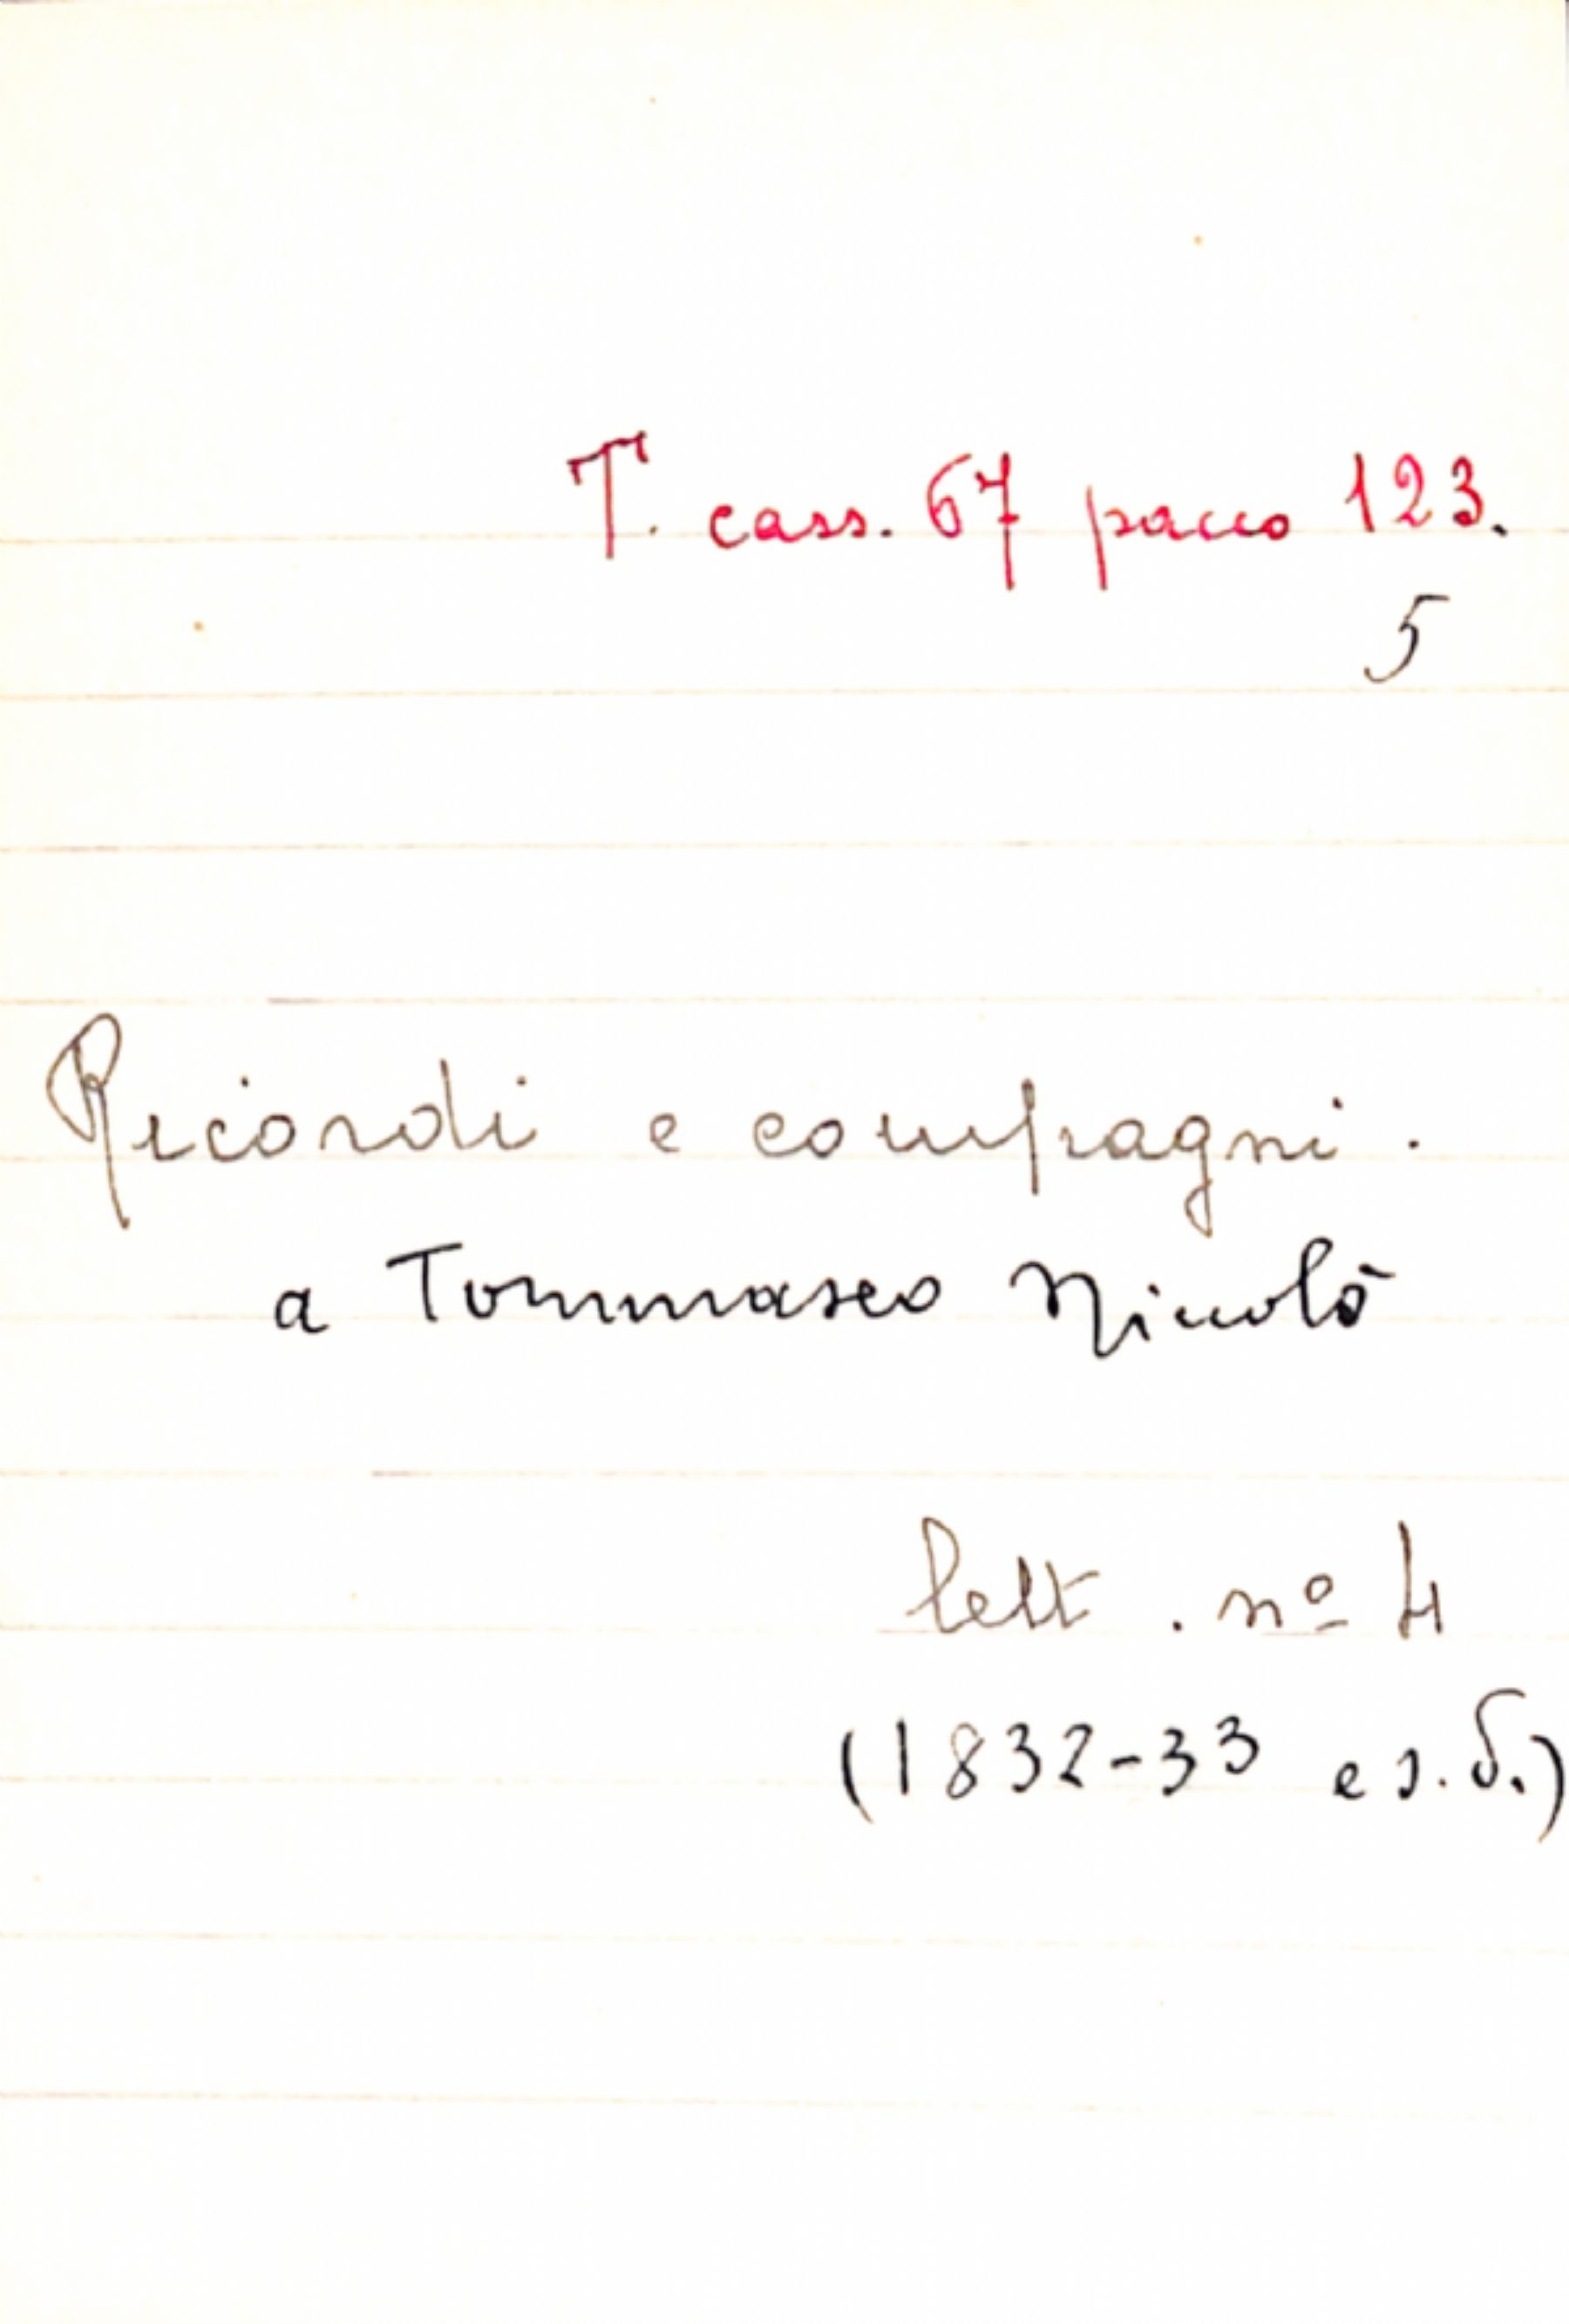 T. cass. 67 pacco 123.
5
Ricordi e compagni.
a Tommaseo Niccolò
lett. nº 4
(1832-33 e s.d.)